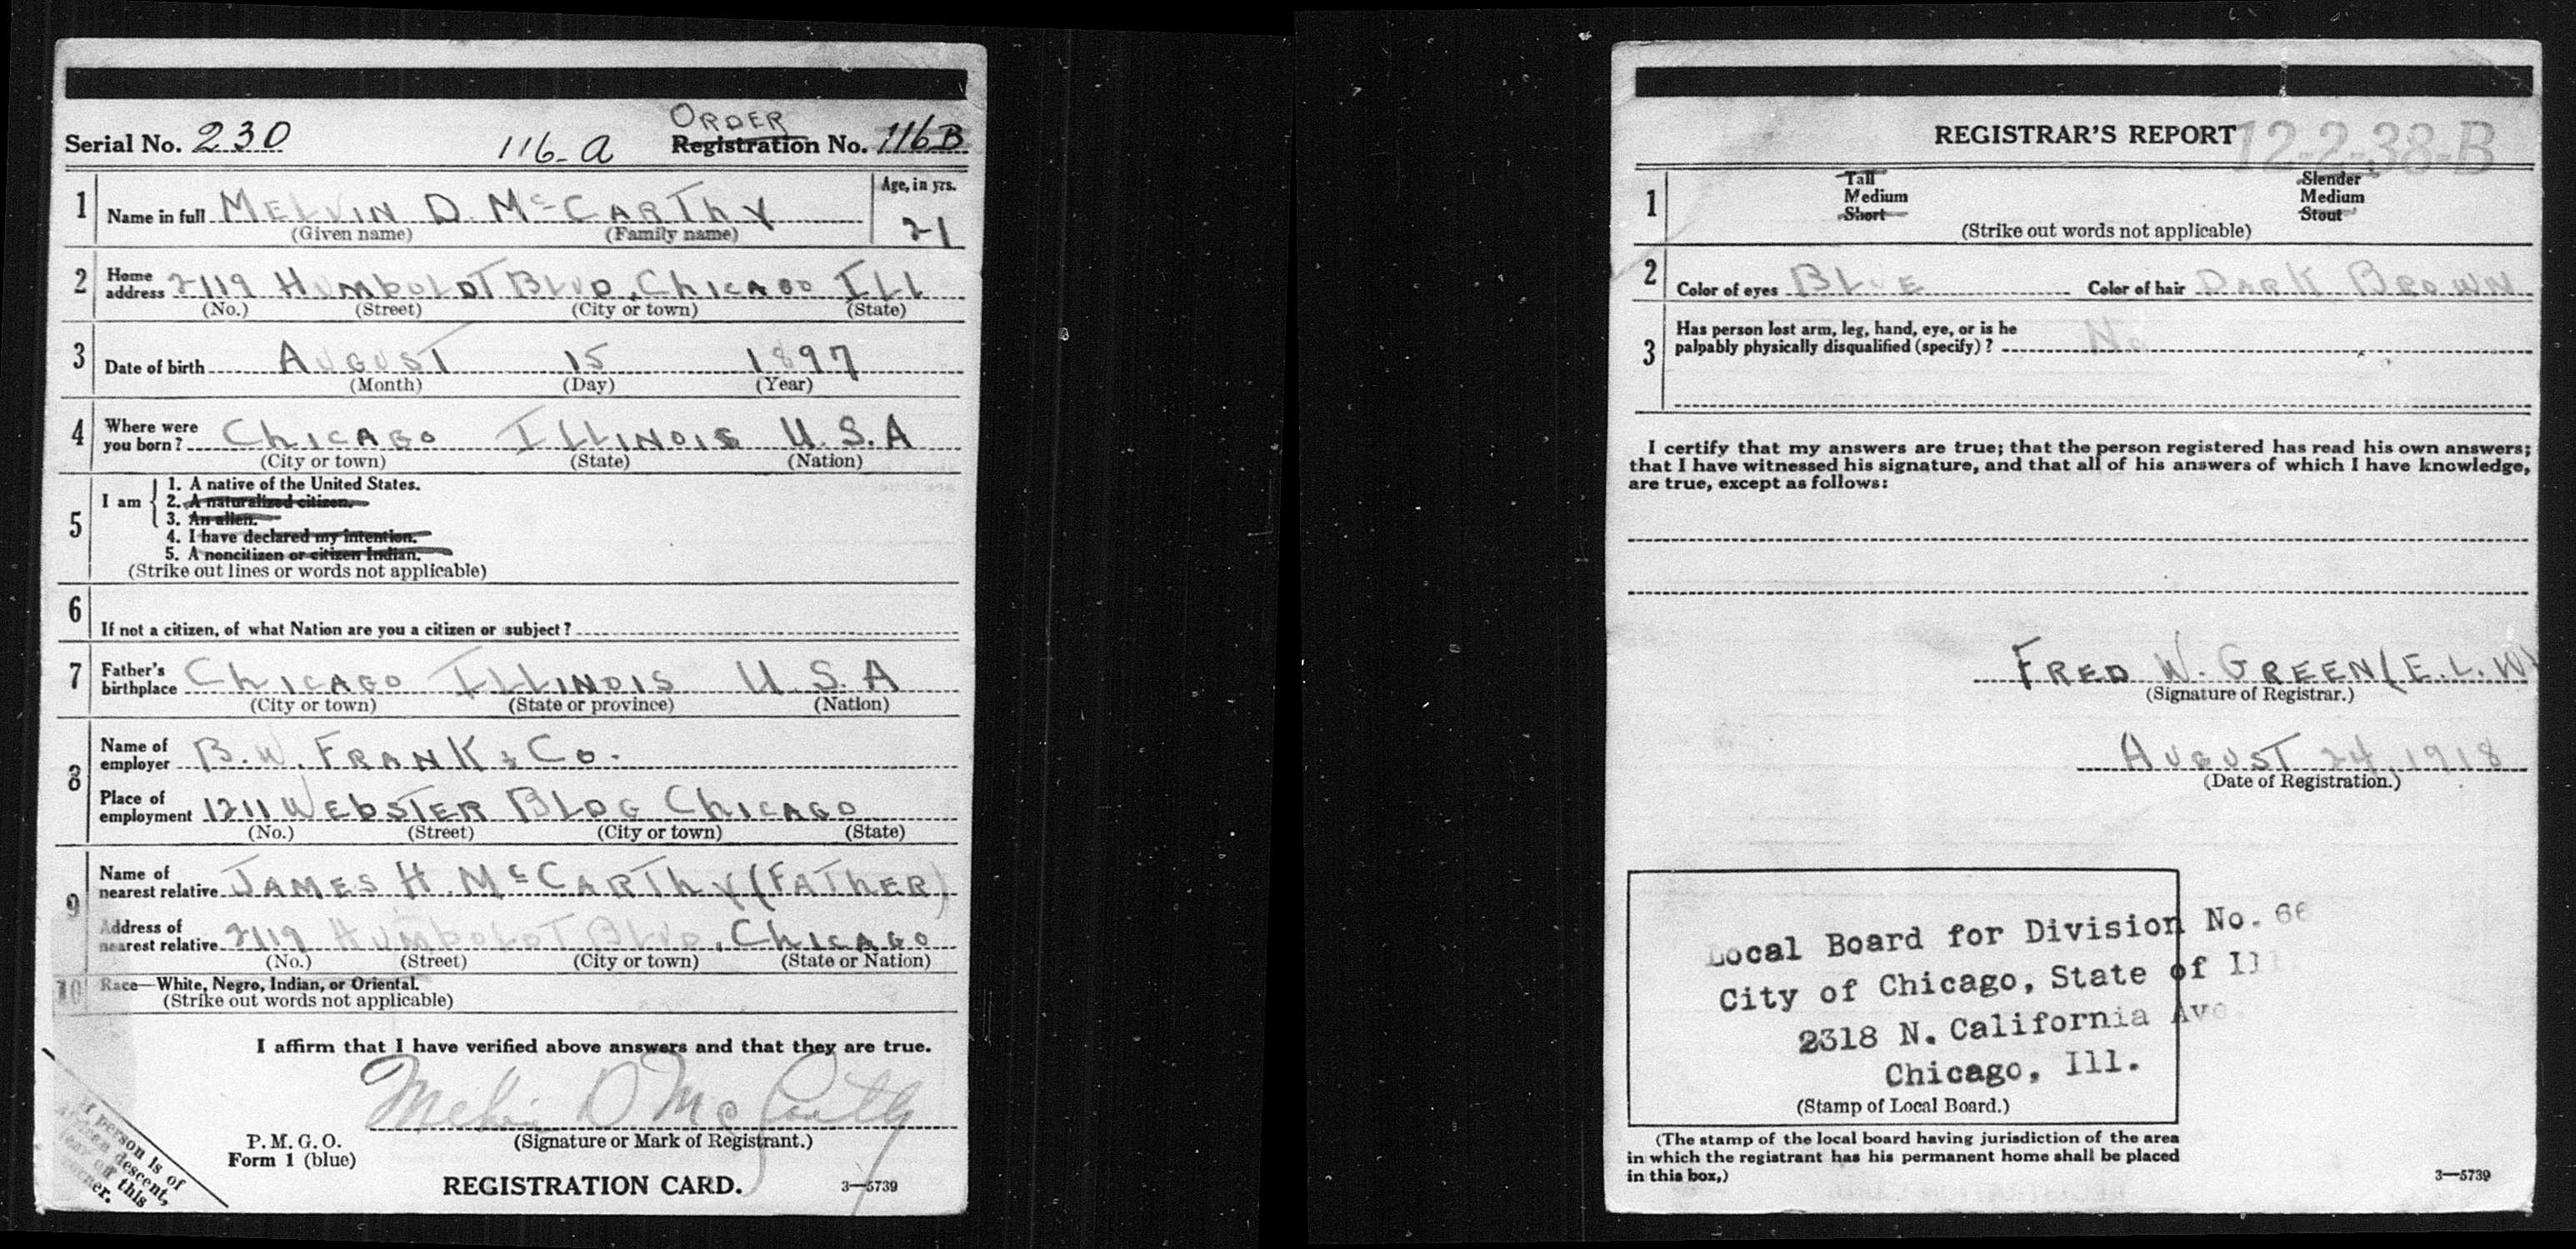 Serial No. 230 116-A ORDER Registration No. 116B
1 Name in full MELVIN D. McCARThY Age, in yrs. 21
(Given name) (Family name)
2 Home address 2119 HUMbOLDT BLVD, ChICAGO ILL
(No.) (Street) (City or town) (State)
3 Date of birth AUGUST 15 1897
(Month) (Day) (Year)
4 Where were you born? ChICAGO ILLINOIS U.S.A
(City or town) (State) (Nation)
5 I am
1. A native of the United States.
2. A naturalized citizen.
3. An alien.
4. I have declared my intention.
5. A noncitizen or citizen Indian.
(Strike out lines or words not applicable)
6 If not a citizen, of what Nation are you a citizen or subject?
7 Father's birthplace ChICAGO ILLINOIS U.S.A
(City or town) (State or province) (Nation)
8 Name of employer B.W. FRANK & Co.
Place of employment 1211 WEbSTER BLDG ChICAGO
(No.) (Street) (City or town) (State)
9 Name of nearest relative JAMES H. McCARThY (FATHER)
Address of nearest relative 2119 HUMbOLDT BLVD, ChICAGO
(No.) (Street) (City or town) (State or Nation)
10 Race—White, Negro, Indian, or Oriental.
(Strike out words not applicable)
I affirm that I have verified above answers and that they are true.
Melvin D McCarthy
(Signature or Mark of Registrant.)
P. M. G. O.
Form 1 (blue)
REGISTRATION CARD. 3—5739
If person is of
descent,
tear off this
corner.
REGISTRAR'S REPORT 12-2-38-B
1 Tall Slender
Medium Medium
Short Stout
(Strike out words not applicable)
2 Color of eyes BLUE Color of hair DARK BROWN
3 Has person lost arm, leg, hand, eye, or is he
palpably physically disqualified (specify)? No
I certify that my answers are true; that the person registered has read his own answers;
that I have witnessed his signature, and that all of his answers of which I have knowledge,
are true, except as follows:
FRED W. GREEN (E.L.W)
(Signature of Registrar.)
AUGUST 24, 1918
(Date of Registration.)
Local Board for Division No. 66
City of Chicago, State of Ill
2318 N. California Ave.
Chicago, Ill.
(Stamp of Local Board.)
(The stamp of the local board having jurisdiction of the area
in which the registrant has his permanent home shall be placed
in this box.)
3—5739